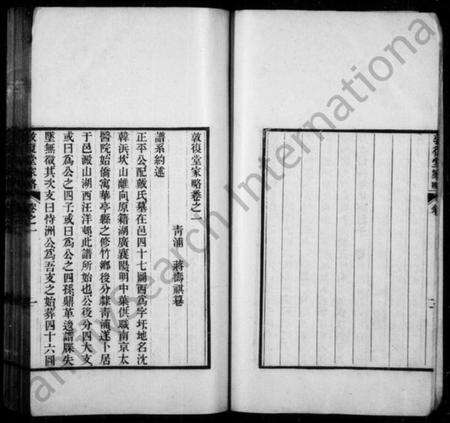 敦復堂家略卷之二
青浦 蔣
譜系約述
正平公配戴氏墓在邑四十七圖西為字圩地名沈
韓浜坎山離向原籍湖廣襄陽明中葉供職南京太
醫院始僑寓華亭縣之修竹鄉後分隸青浦遂卜居
于邑澱山湖西汪洋邨此譜所始也公後分四大支
或曰為公之四子或曰為公之四孫鼎革造譜牒失
墜無徵其次支曰恃洲公為吾支之始葬四十六圖
敦復堂家略
卷之二
一
敦復堂家略
卷
二
amily Search International